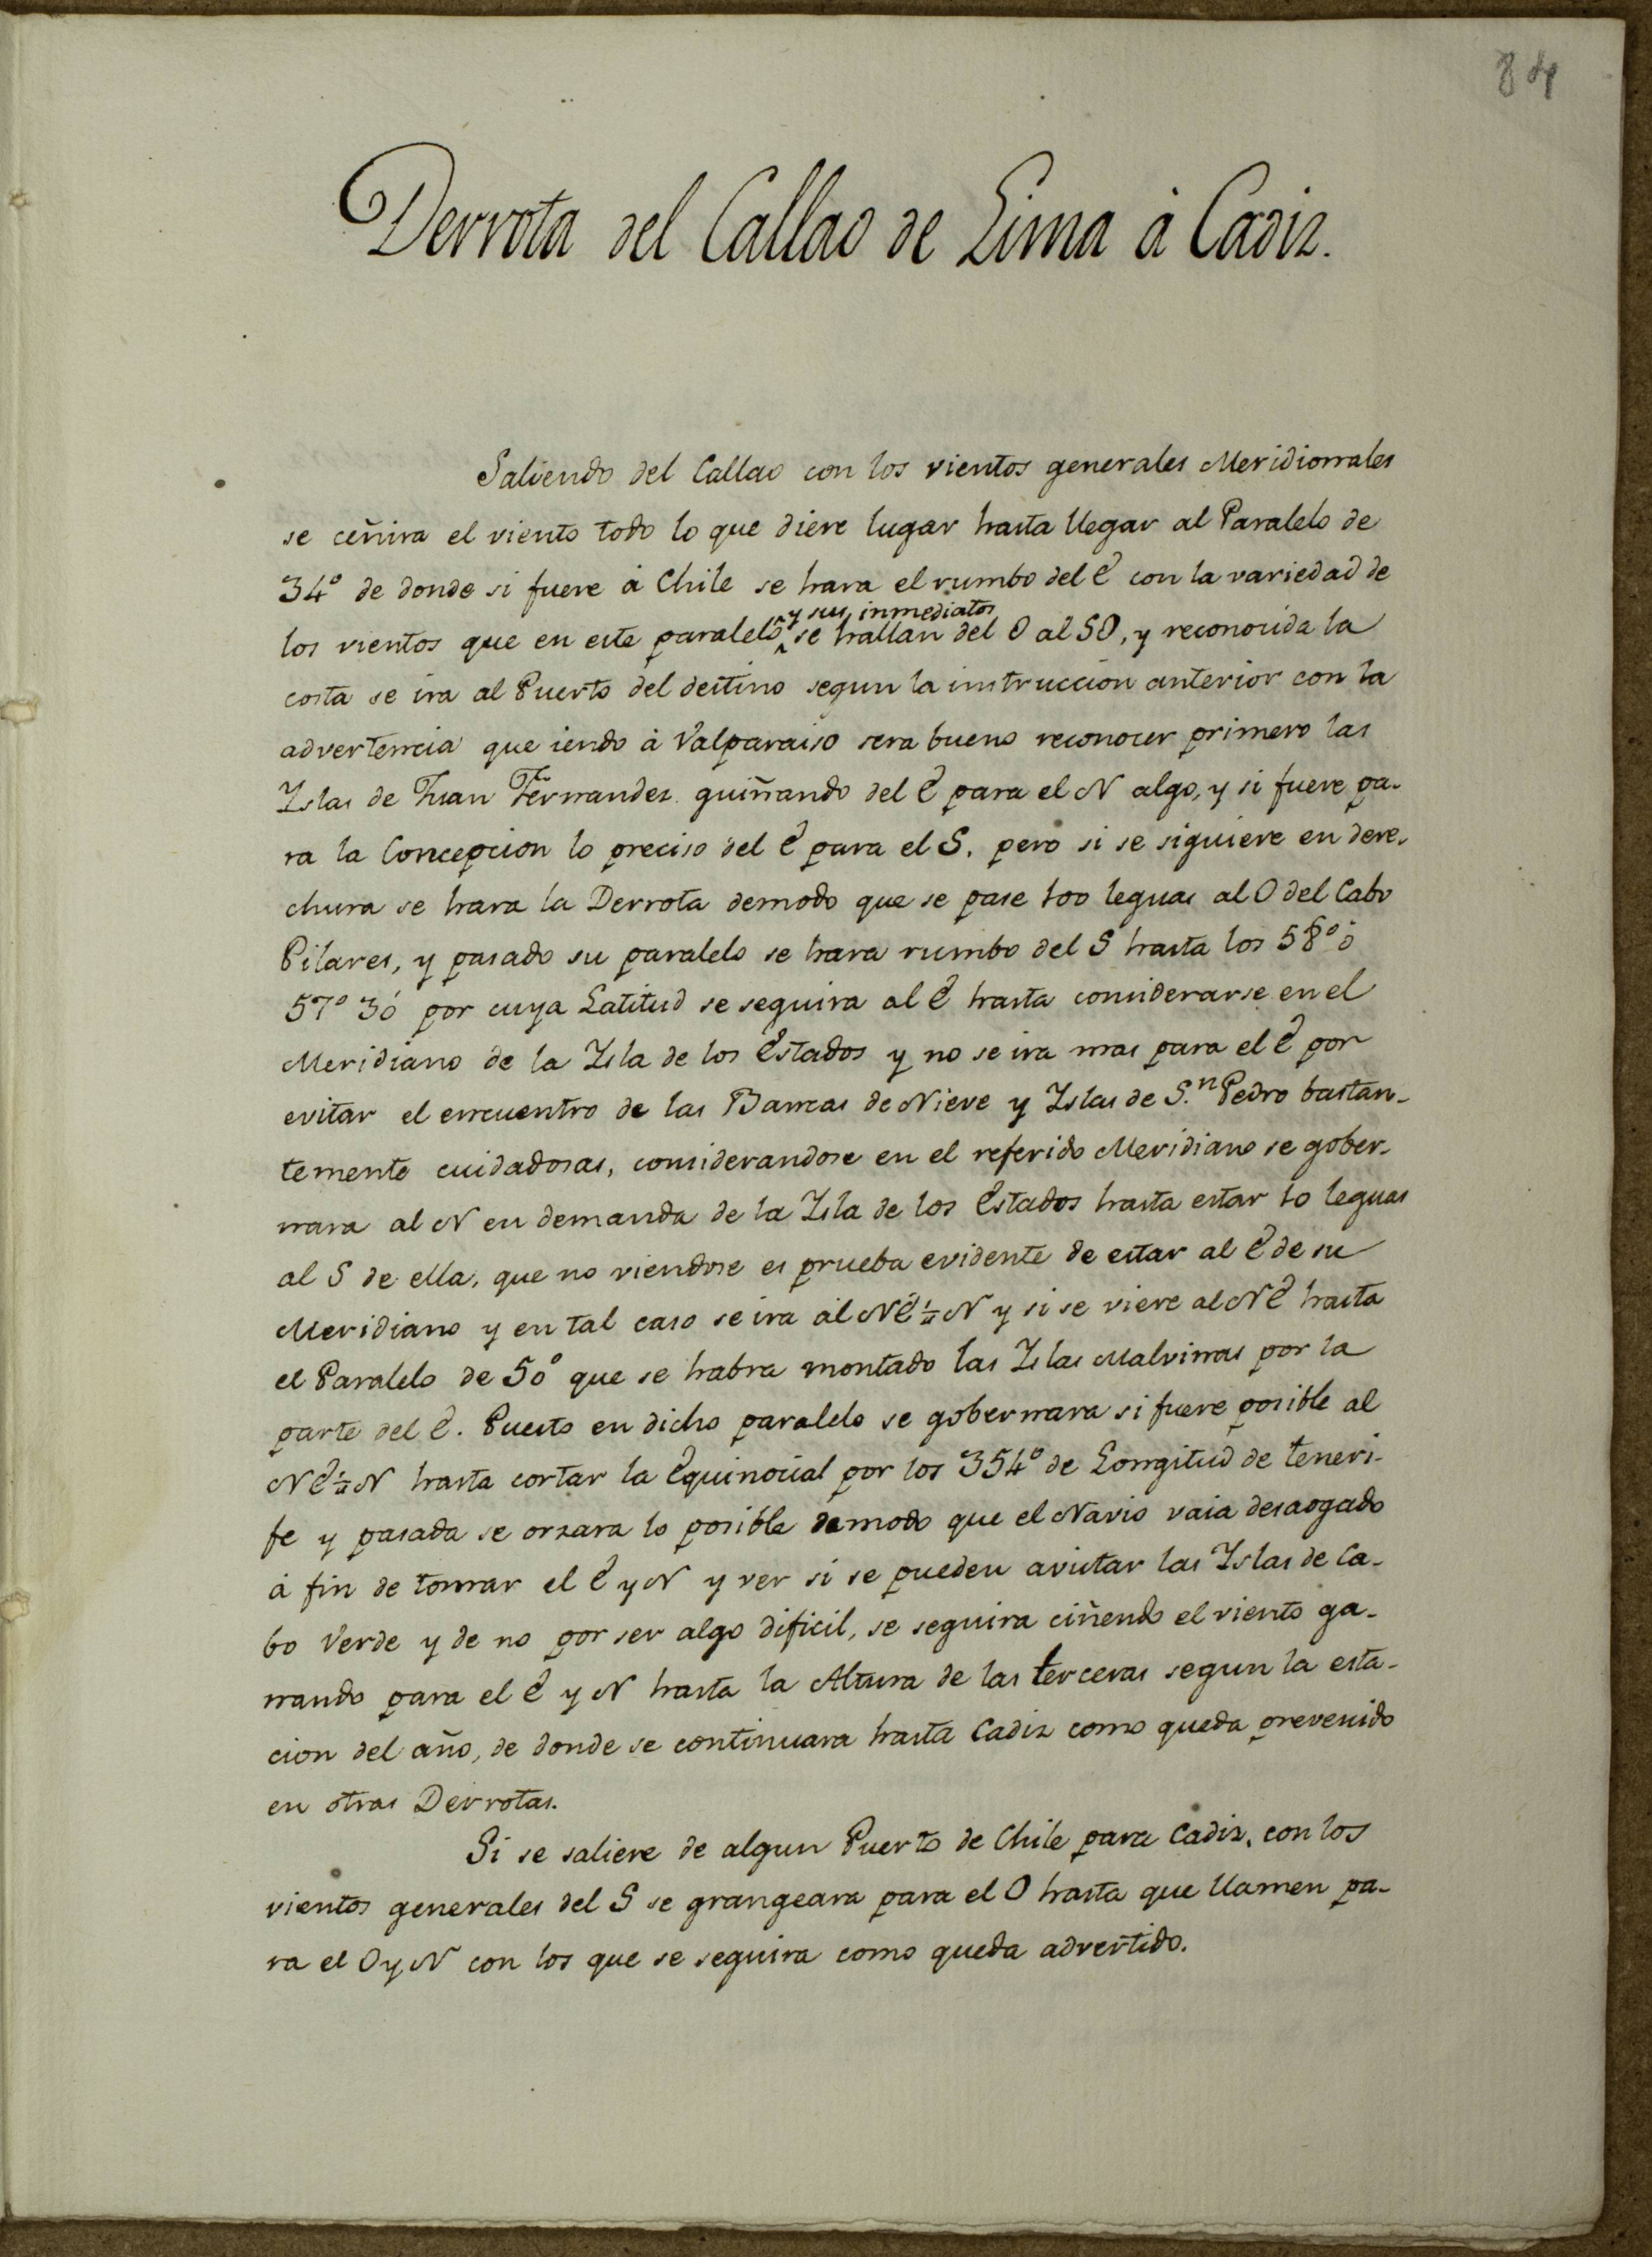 84
Derrota del Callao de Lima à Cadiz.
Saliendo del Callao con los vientos generales Meridionales
se ceñira el viento todo lo que diere lugar hasta llegar al Paralelo de
34° de donde si fuere à Chile se hara el rumbo del E con la variedad de
y sus inmediatos
los vientos que en este paralelo ^ se hallan del O al SO, y reconocida la
costa se ira al Puerto del destino segun la instruccion anterior con la
advertencia que iendo à Valparaiso sera bueno reconocer primero las
Islas de Juan Fernandez guiñando del E para el N algo, y si fuere pa-
ra la Concepcion lo preciso del E para el S. pero si se siguiere en dere-
chura se hara la Derrota demodo que se pase 100 leguas al O del Cabo
Pilares, y pasado su paralelo se hara rumbo del S hasta los 58° ò
57° 30' por cuya Latitud se seguira al E hasta considerarse en el
Meridiano de la Isla de los Estados y no se ira mas para el E por
evitar el encuentro de las Bancas de Nieve y Islas de S.n Pedro bastan-
temente cuidadosas, considerandose en el referido Meridiano se gober-
nara al N en demanda de la Isla de los Estados hasta estar 10 leguas
al S de ella, que no viendose es prueba evidente de estar al E de su
Meridiano y en tal caso se ira al NE¼N y si se viere al NE hasta
el Paralelo de 50° que se habra montado las Islas Malvinas por la
parte del E. Puesto en dicho paralelo se gobernara si fuere posible al
NE¼N hasta cortar la Equinocial por los 354° de Longitud de teneri-
fe y pasada se orzara lo posible demodo que el Navio vaia desaogado
à fin de tomar el E y N y ver si se pueden avistar las Islas de Ca-
bo Verde y de no por ser algo dificil, se seguira ciñendo el viento ga-
nando para el E y N hasta la Altura de las terceras segun la esta-
cion del año, de donde se continuara hasta Cadiz como queda prevenido
en otras Derrotas.
Si se saliere de algun Puerto de Chile para Cadiz, con los
vientos generales del S se grangeara para el O hasta que llamen pa-
ra el O y N con los que se seguira como queda advertido.